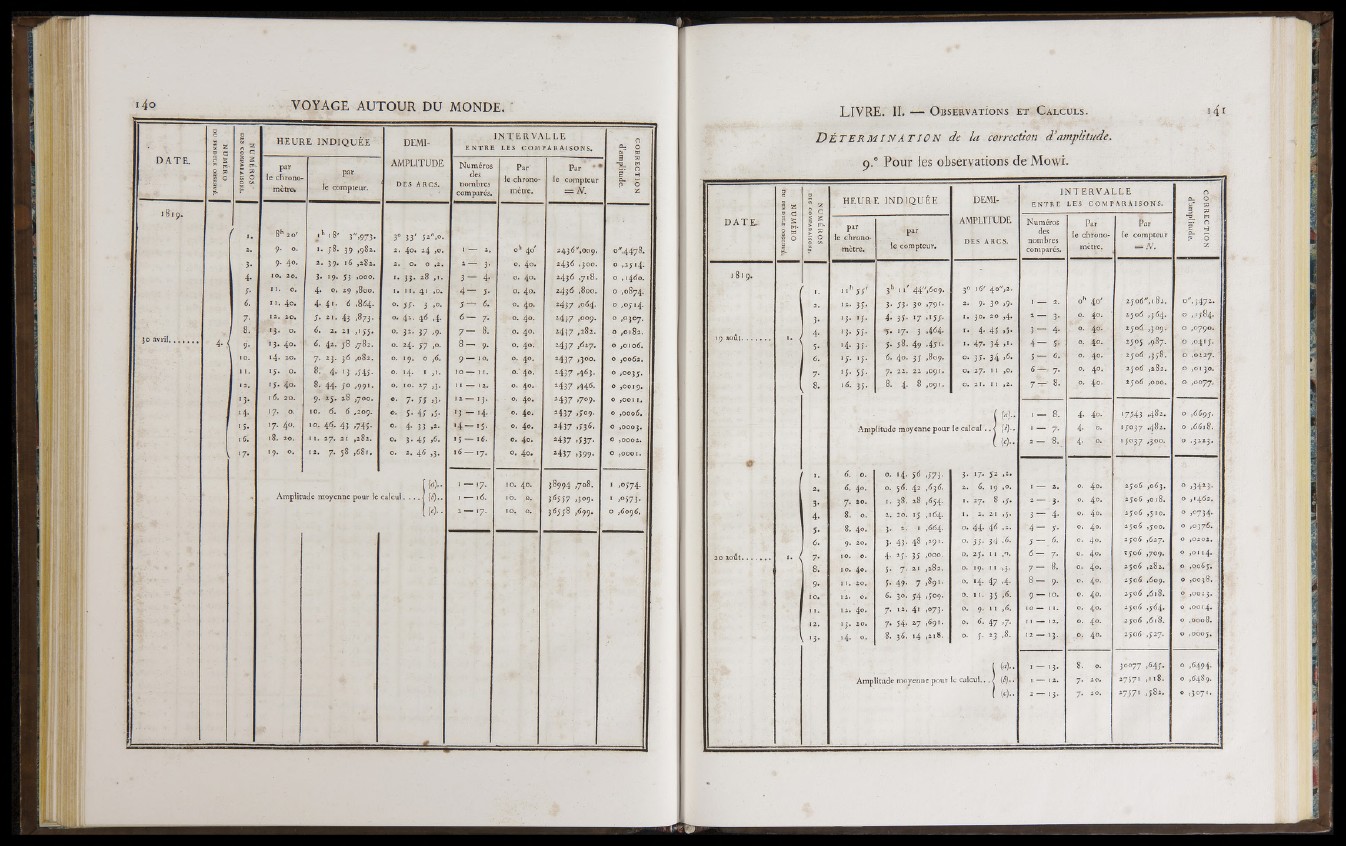 140 VOYAGE AUTOUR DU MONDE.
DATE. NUMÉRO DU MOBILE OBSERVÉ. NUMÉROS DES COMPARAISONS. HEURE INDIQUÉE DEMI-AMPLITUDE DES ARCS. INTERVALLE ENTRE LES COMPARAISONS. CORRECTION d'amplitude.
par le chronomètre. par le compteur. Numéros des nombres comparés. Par le chronomètre. Par le compteur = N.
1819.
1. 8h 20' 1h 18' 3",973. 3° 33' 52",0.
2. 9. 0. 1. 58. 39 ,982. 2. 40. 24 ,0. 1 — 2. 0h 40' 2436",009. 0",4478.
3. 9. 40. 2. 39. 16 ,282. 2. 0. 0 ,2. 2 — 3. 0. 40. 2436 ,300. 0 ,2514.
4. 10. 20. 3. 19. 53 ,000. 1. 33. 28 ,1. 3 — 4. 0. 40. 2436 ,718. 0 ,1460.
5. 11. 0. 4. 0. 29 ,800. 1. 11. 41 ,0. 4 — 5. 0. 40. 2436 ,800. 0 ,0874.
6. 11. 40. 4. 41. 6 ,864. 0. 55. 5 ,0. 5 — 6. 0. 40. 2437 ,064. 0 ,0514.
7. 12. 20. 5. 21. 43 ,873. 0. 42. 46 ,4. 6 — 7. 0. 40. 2437 ,009. 0 ,0307.
8. 13. 0. 6. 2. 21 ,155. 0. 32. 37 ,9. 7 — 8. 0. 40. 2437 ,282. 0 ,0182.
30 avril....... 4. 9. 13. 40. 6. 42. 58 ,782. 0. 24. 57 ,0. 8 — 9. 0. 40. 2437 ,627. 0 ,0106.
10. 14. 20. 7. 23. 36 ,082. 0. 19. 0 ,6. 9 — 10. 0. 40. 2437 ,300. 0 ,0062.
11. 15. 0. 8. 4. 13 ,545. 0. 14. 1 ,1. 10 — 11. 0. 40. 2437 ,463. 0 ,0035.
12. 15. 40. 8. 44. 50 ,991. 0. 10. 27 ,3. 11 — 12. 0. 40. 2437 ,446. 0 ,0019.
13. 16. 20. 9. 25. 28 ,700. 0. 7. 55 ,3. 12 — 13. 0. 40. 2437 ,709. 0 ,0011.
14. 17. 0. 10. 6. 6 ,209. 0. 5. 45 ,5. 13 — 14. 0. 40. 2437 ,509. 0 ,0006.
15. 17. 40. 10. 46. 43 ,745. 0. 4. 33 ,2. 14 — 15. 0. 40. 2437 ,536. 0 ,0003.
16. 18. 20. 11. 27. 21 ,282. 0. 3. 45 ,6. 15 — 16. 0. 40. 2437 ,537. 0 ,0002.
17. 19. 0. 12. 7. 58 ,681. 0. 2. 46 ,3. 16 — 17. 0. 40. 2437 ,399. 0 ,0001.
(a).. 1 — 17. 10. 40. 38994 ,708. 1 ,0574.
Amplitude moyenne pour le calcul.... (b).. 1 — 16. 10. 0. 36557 ,309. 1 ,0573.
(c).. 2 — 17. 10. 0. 36558 ,699. 0 ,6096.
LIVRE. II. — OBSERVATIONS ET CALCULS. 141
DÉTERMINATION de la correction d'amplitude.
9.e Pour les observations de Mowi.
DATE. NUMÉRO DU MOBILE OBSERVÉ. NUMÉROS DES COMPARAISONS. HEURE INDIQUÉE DEMI-AMPLITUDE DES ARCS. INTERVALLE ENTRE LES COMPARAISONS. CORRECTION d'amplitude.
par le chronomètre. par le compteur. Numéros des nombres comparés. Par le chronomètre. Par le compteur = N.
1819.
1. 11h 55' 3h 11' 44",609. 3° 16' 40",2.
2. 12. 35. 3. 53. 30 ,791. 2. 9. 30 ,9. 1 — 2. 0h 40' 2506",182. 0",3472.
3. 13. 15. 4. 35. 17 ,155. 1. 30. 20 ,4. 2 — 3. 0. 40. 2506 ,364. 0 ,1584.
4. 13. 55. 5. 17. 3 ,464. 1. 4. 45 ,5. 3 — 4. 0. 40. 2506 ,309. 0 ,0790.
19 août....... 1. 5. 14. 35. 5. 58. 49 ,451. 1. 47. 34 ,1. 4 — 5. 0. 40. 2505 ,987. 0 ,0415.
6. 15. 15. 6. 40. 35 ,809. 0. 35. 34 ,6. 5 — 6. 0. 40. 2506 ,358. 0 ,0227.
7. 15. 55. 7. 22. 22 ,091. 0. 27. 11 ,0. 6 — 7. 0. 40. 2506 ,282. 0 ,0130.
8. 16. 35. 8. 4. 8 ,091. 0. 21. 11 ,2. 7 — 8. 0. 40. 2506 ,000. 0 ,0077.
(a).. 1 — 8. 4. 40. 17543 ,482. 0 ,6695.
Amplitude moyenne pour le calcul .. (b).. 1 — 7. 4. 0. 15037 ,482. 0 ,6618.
(c).. 2 — 8. 4. 0. 15037 ,300. 0 ,3223.
1. 6. 0. 0. 14. 56 ,573. 3. 17. 52 ,2.
2. 6. 40. 0. 56. 42 ,636. 2. 6. 19 ,0. 1 — 2. 0. 40. 2506 ,063. 0 ,3423.
3. 7. 20. 1. 38. 28 ,654. 1. 27. 8 ,5. 2 — 3. 0. 40. 2506 ,018. 0 ,1462.
4. 8. 0. 2. 20. 15 ,164. 1. 2. 21 ,5. 3 — 4. 0. 40. 2506 ,510. 0 ,0734.
5. 8. 40. 3. 2. 1 ,664. 0. 44. 46 ,2. 4 — 5. 0. 40. 2506 ,500. 0 ,0376.
6. 9. 20. 3. 43. 48 ,291. 0. 33. 34 ,6. 5 — 6. 0. 40. 2506 ,627. 0 ,0202.
20 août....... 1. 7. 10. 0. 4. 25. 35 ,000. 0. 25. 11 ,0. 6 — 7. 0. 40. 2506 ,709. 0 ,0114.
8. 10. 40. 5. 7. 21 ,282. 0. 19. 11 ,3. 7 — 8. 0. 40. 2506 ,282. 0 ,0065.
9. 11. 20. 5. 49. 7 ,891. 0. 14. 47 ,4. 8 — 9. 0. 40. 2506 ,609. 0 ,0038.
10. 12. 0. 6. 30. 54 ,509. 0. 11. 35 ,6. 9 — 10. 0. 40. 2506 ,618. 0 ,0023.
11. 12. 40. 7. 12. 41 ,073. 0. 9. 11 ,6. 10 — 11. 0. 40. 2506 ,564. 0 ,0014.
12. 13. 20. 7. 54. 27 ,691. 0. 6. 47 ,7. 11 — 12. 0. 40. 2506 ,618. 0 ,0008.
13. 14. 0. 8. 36. 14 ,218. 0. 5. 23 ,8. 12 — 13. 0. 40. 2506 ,527. 0 ,0005.
(a).. 1 — 13. 8. 0. 30077 ,645. 0 ,6494.
Amplitude moyenne pour le calcul... (b).. 1 — 12. 7. 20. 27571 ,118. 0 ,6489.
(c).. 2 — 13. 7. 20. 27571 ,582. 0 ,3071.